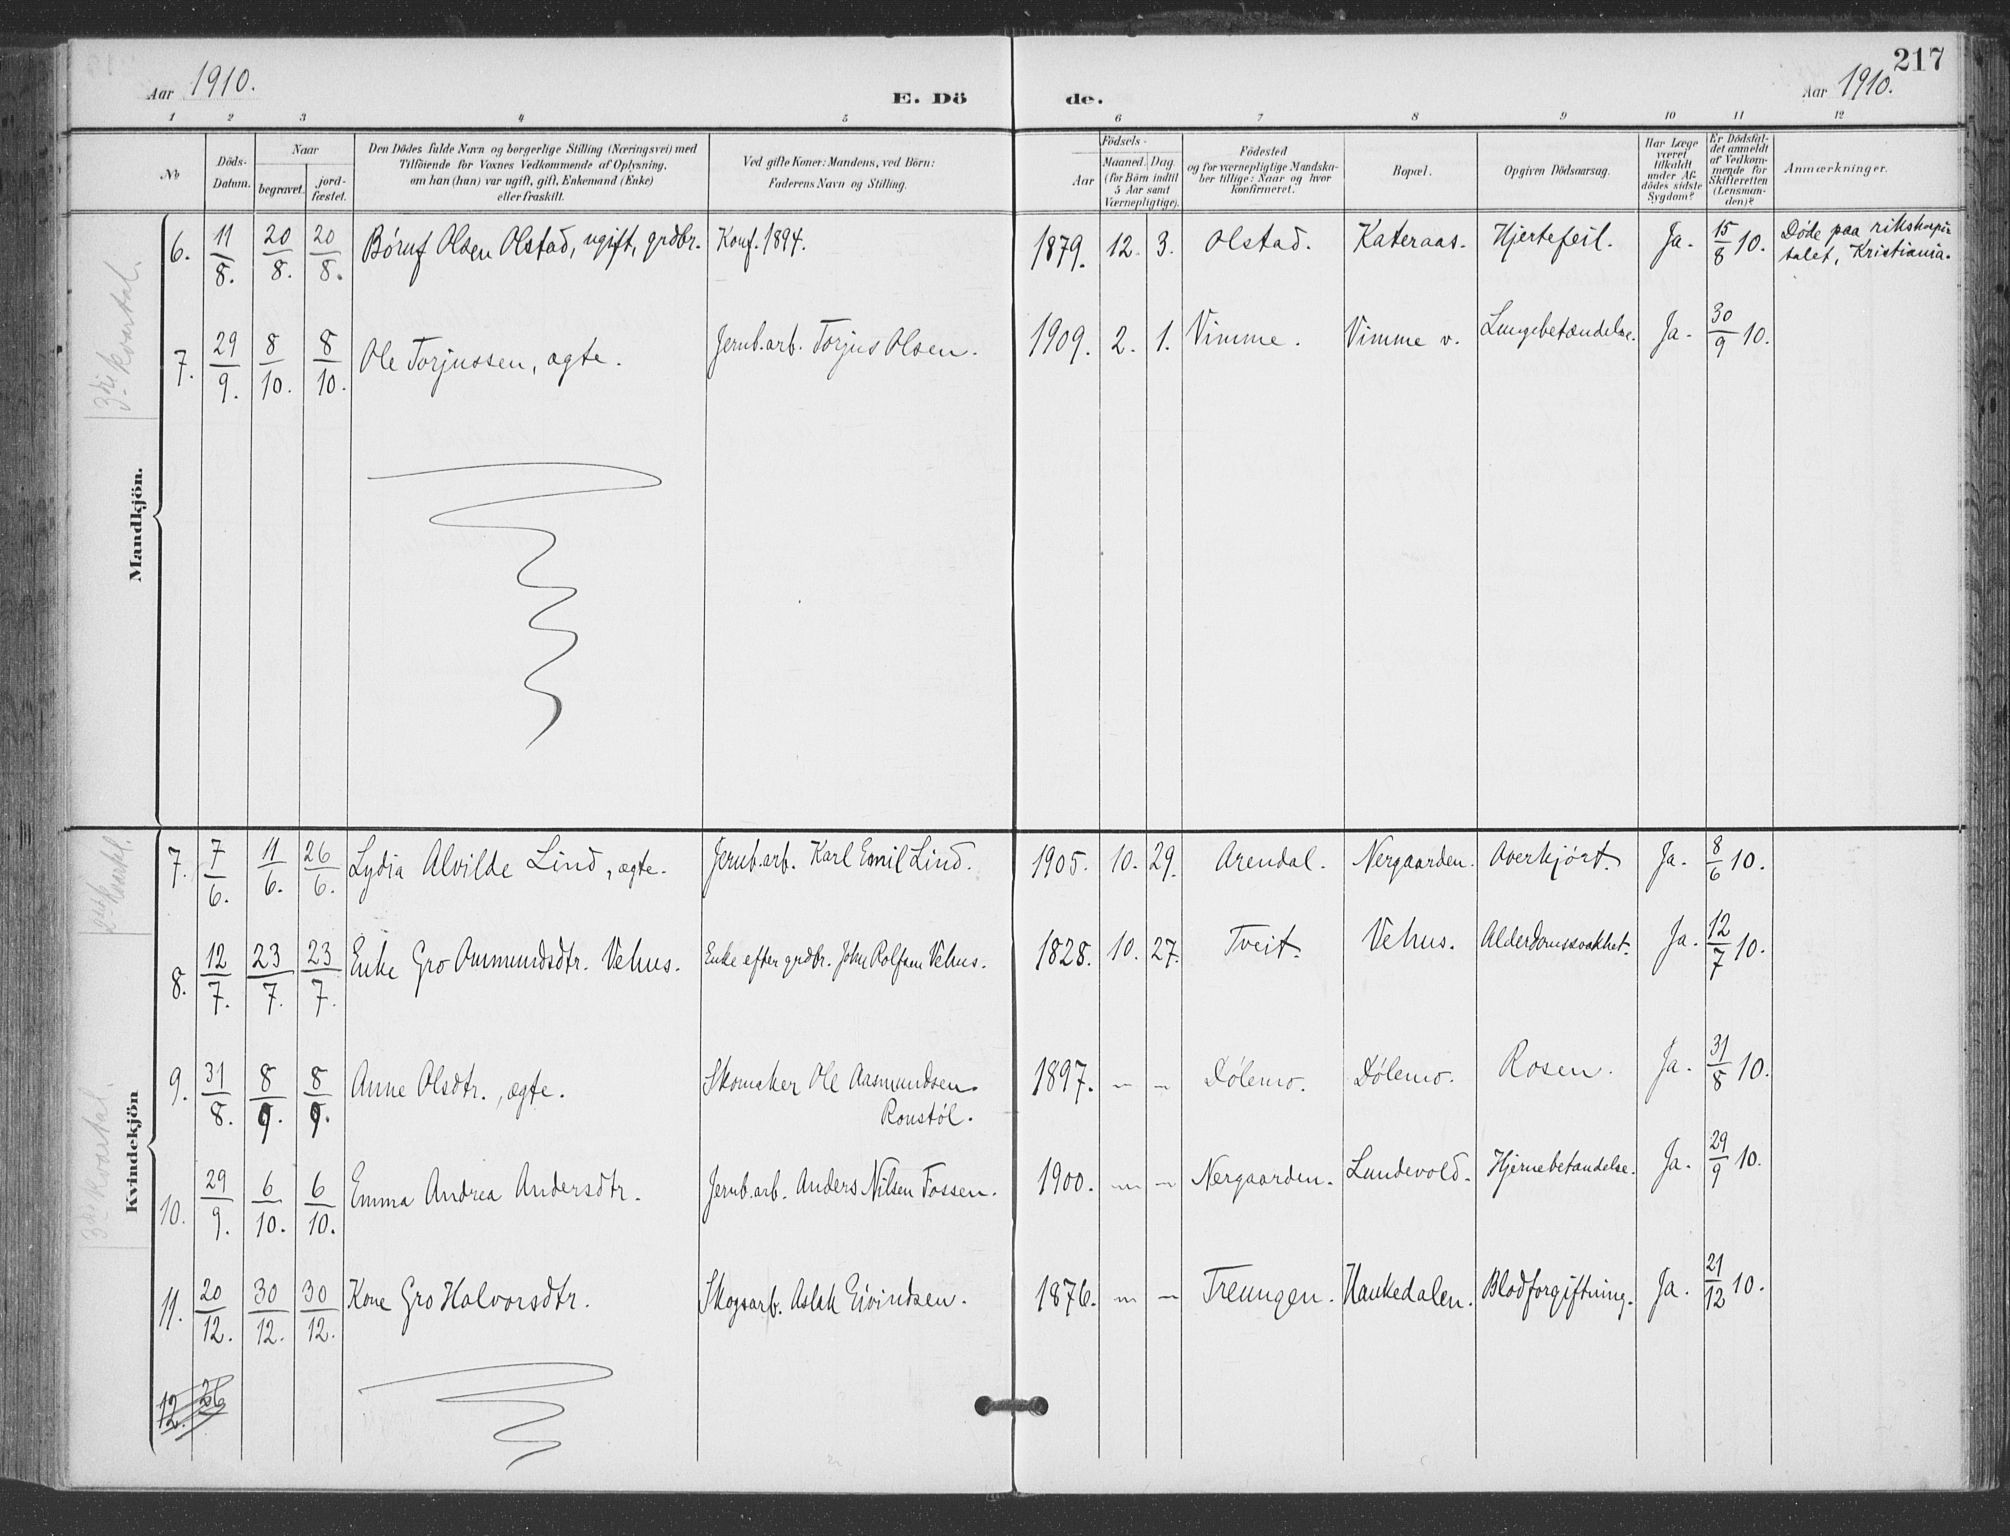 217
Aar 1910.
E. Dö
de.
Aar 1910.
1 2 3 4 5 6 7 8 9 10 11 12
No
Döds-
Datum.
Naar
begravet.
jord-
fæstet.
Den Dödes fulde Navn og borgerlige Stilling (Næringsvei) med
Tilföiende for Voxnes Vedkommende af Oplysning,
om han (hun) var ugift, gift, Enkemand (Enke)
eller fraskilt.
Ved gifte Koner: Mandens, ved Börn:
Faderens Navn og Stilling.
Födsels-
Aar
Maaned.
Dag
(for Börn indtil
5 Aar samt
Værnepligtige).
Födested
og for værnepligtige Mandska-
ber tillige: Naar og hvor
konfirmeret.
Bopæl.
Opgiven Dödsaarsag.
Har Læge
været
tilkaldt
under Af-
dödes sidste
Sygdom?
Er Dödsfal-
det anmeldt
af Vedkom-
mende for
Skifteretten
(Lensman-
den)?
Anmærkninger.
3die kvartal.
Mandkjön.
6. 11/8. 20/8. 20/8. Børuf Olsen Olstad, ugift, grdbr. Konf. 1894. 1879. 12. 3. Olstad. Kateraas. Hjertefeil. Ja. 15/8 10. Døde paa rikshospi-
talet, Kristiania.
7. 29/9. 8/10. 8/10. Ole Torjussen, ægte. Jernb.arb. Torjus Olsen. 1909. 2. 1. Vimme. Vimme v. Lungebetændelse. Ja. 30/9 10.
Kvindekjön
7. 7/6. 11/6. 26/6. Lydia Alvilde Lind, ægte. Jernb.arb. Karl Emil Lind. 1905. 10. 29. Arendal. Nergaarden. Overkjørt. Ja. 8/6 10.
8. 12/7. 23/7. 23/7. Enke Gro Ommundsdtr. Vehus. Enke efter grdbr. John Rolfsen Vehus. 1828. 10. 27. Tveit. Vehus. Alderdomssvakhet. Ja. 12/7 10.
3die kvartal.
9. 31/8. 8/9. 8/9. Anne Olsdtr., ægte. Skomaker Ole Aasmundsen 1897. — — Dølemo. Dølemo. Rosen. Ja. 31/8 10.
Ronstøl.
10. 29/9. 6/10. 6/10. Emma Andrea Andersdtr. Jernb.arb. Anders Nilsen Fossen. 1900. — — Nergaarden. Lundevold. Hjernebetændelse. Ja. 29/9 10.
11. 20/12. 30/12. 30/12. Kone Gro Halvorsdtr. Skogsarb. Aslak Eivindsen. 1876. — — Treungen. Haukedalen. Blodforgiftning. Ja. 21/12 10.
12. 26